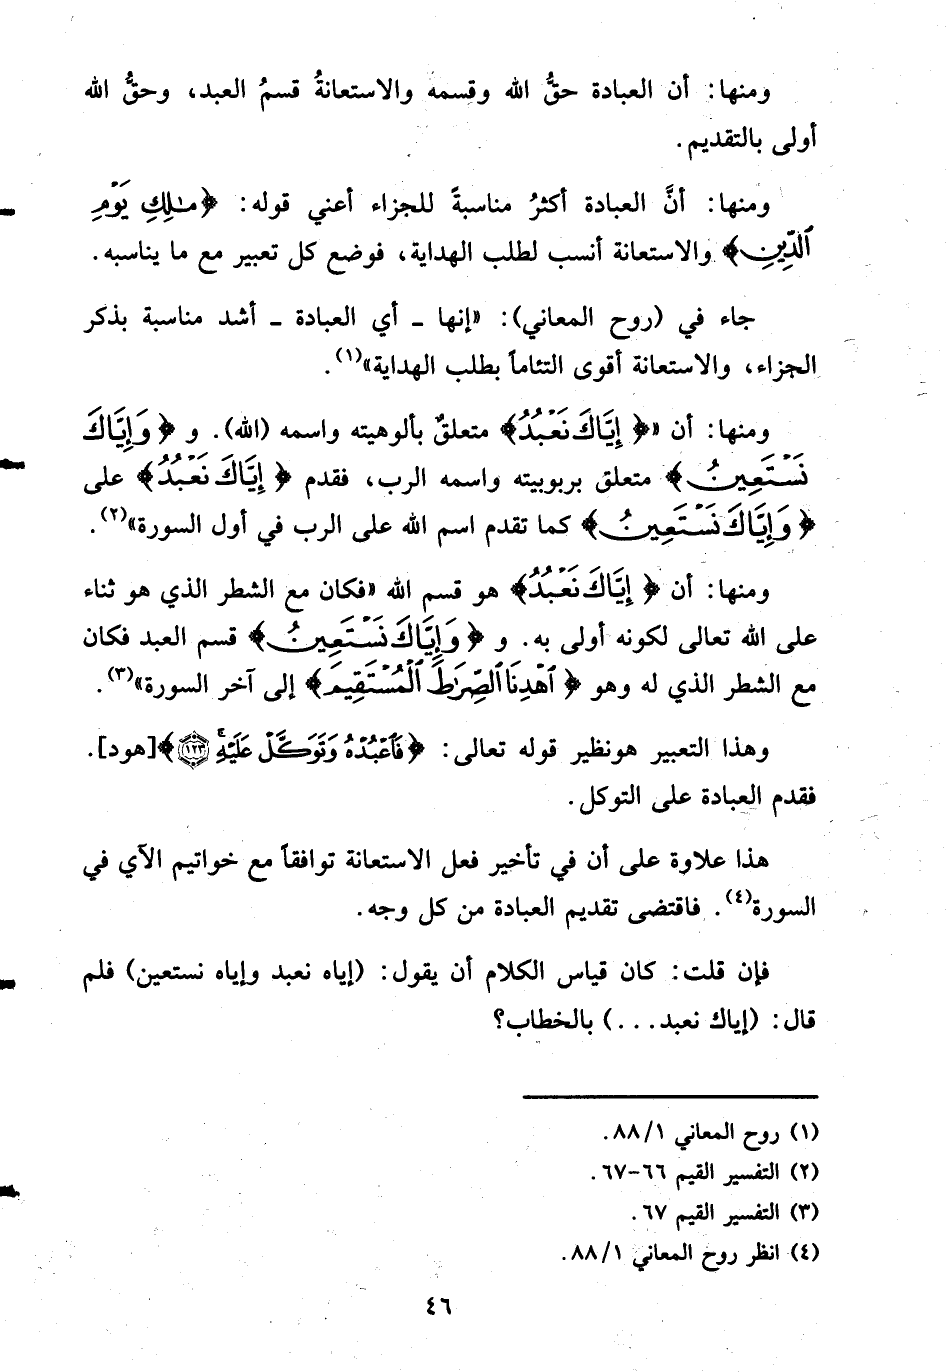 ومنها: أن العبادة حقُّ الله وقسمه والاستعانةُ قسمُ العبد، وحقُّ الله
أولى بالتقديم.
ومنها: أنَّ العبادة أكثرُ مناسبةً للجزاء أعني قوله: ﴿مَـٰلِكِ يَوْمِ
ٱلدِّينِ﴾ والاستعانة أنسب لطلب الهداية، فوضع كل تعبير مع ما يناسبه.
جاء في (روح المعاني): «إنها ـ أي العبادة ـ أشد مناسبة بذكر
الجزاء، والاستعانة أقوى التئاماً بطلب الهداية»(١).
ومنها: أن «﴿إِيَّاكَ نَعْبُدُ﴾ متعلقٌ بألوهيته واسمه (الله). و ﴿وَإِيَّاكَ
نَسْتَعِينُ﴾ متعلق بربوبيته واسمه الرب، فقدم ﴿إِيَّاكَ نَعْبُدُ﴾ على
﴿وَإِيَّاكَ نَسْتَعِينُ﴾ كما تقدم اسم الله على الرب في أول السورة»(٢).
ومنها: أن ﴿إِيَّاكَ نَعْبُدُ﴾ هو قسم الله «فكان مع الشطر الذي هو ثناء
على الله تعالى لكونه أولى به. و ﴿وَإِيَّاكَ نَسْتَعِينُ﴾ قسم العبد فكان
مع الشطر الذي له وهو ﴿ٱهْدِنَا ٱلصِّرَٰطَ ٱلْمُسْتَقِيمَ﴾ إلى آخر السورة»(٣).
وهذا التعبير هونظير قوله تعالى: ﴿فَٱعْبُدْهُ وَتَوَكَّلْ عَلَيْهِ ۚ ١٢٣﴾[هود].
فقدم العبادة على التوكل.
هذا علاوة على أن في تأخير فعل الاستعانة توافقاً مع خواتيم الآي في
السورة(٤). فاقتضى تقديم العبادة من كل وجه.
فإن قلت: كان قياس الكلام أن يقول: (إياه نعبد وإياه نستعين) فلم
قال: (إياك نعبد...) بالخطاب؟
(١) روح المعاني ١/ ٨٨.
(٢) التفسير القيم ٦٦-٦٧.
(٣) التفسير القيم ٦٧.
(٤) انظر روح المعاني ١/ ٨٨.
٤٦